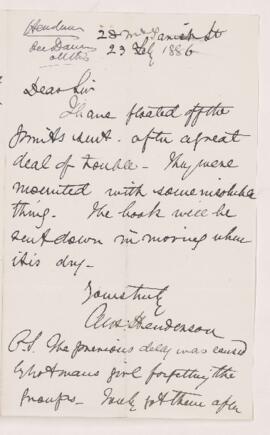 Henderson
28 McTavish St
23 Feby 1886
Dear Sir
I have floated off the
permits sent. after a great
deal of trouble - They were
mounted with some
thing. The book will be
sent down in morning when
it is dry -
Yours truly
Alex Henderson
P.S. The previous delay was caused
by girl forgetting the
groups. Only got them after